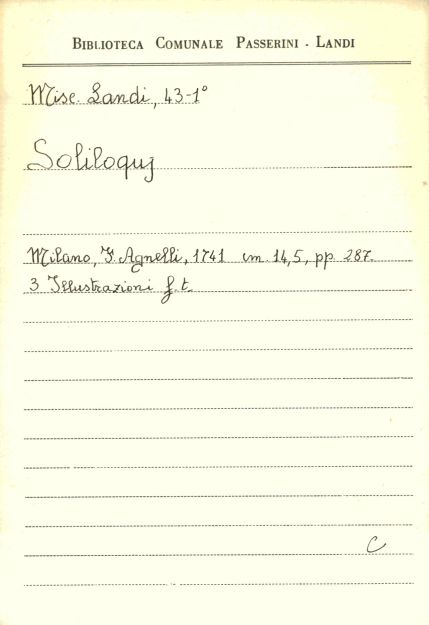 BIBLIOTECA COMUNALE PASSERINI - LANDI
Misc. Landi, 43-1°
Soliloquj
Milano, F. Agnelli, 1741 cm. 14,5, pp. 287.
3 Illustrazioni f.t.
C